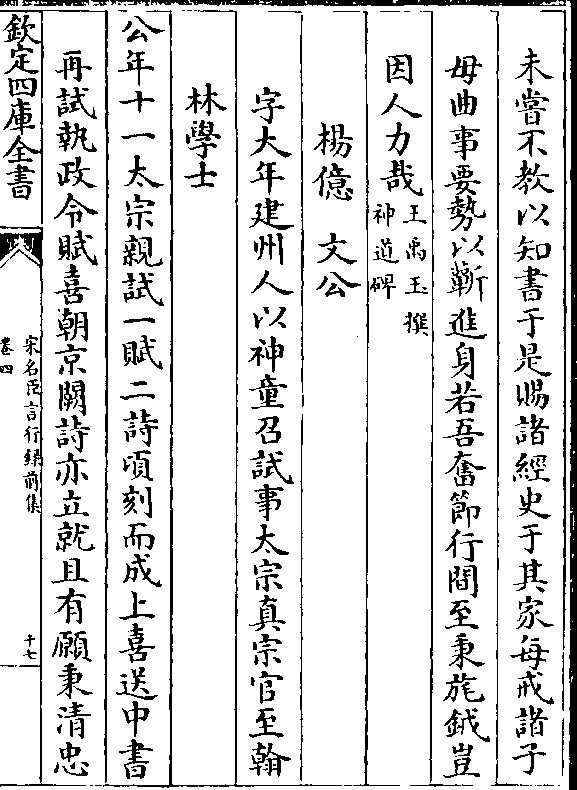 未嘗不教以知書于是賜諸經史于其家每戒諸子
毋曲事要勢以蘄進身若吾奮節行間至秉旄鉞豈
因人力哉王禹玉撰
神道碑
楊億　文公
字大年建州人以神童召試事太宗真宗官至翰
林學士
公年十一太宗親試一賦二詩頃刻而成上喜送中書
再試執政令賦喜朝京闕詩亦立就且有願秉清忠
欽定四庫全書
宋名臣言行錄前集
卷四
十七